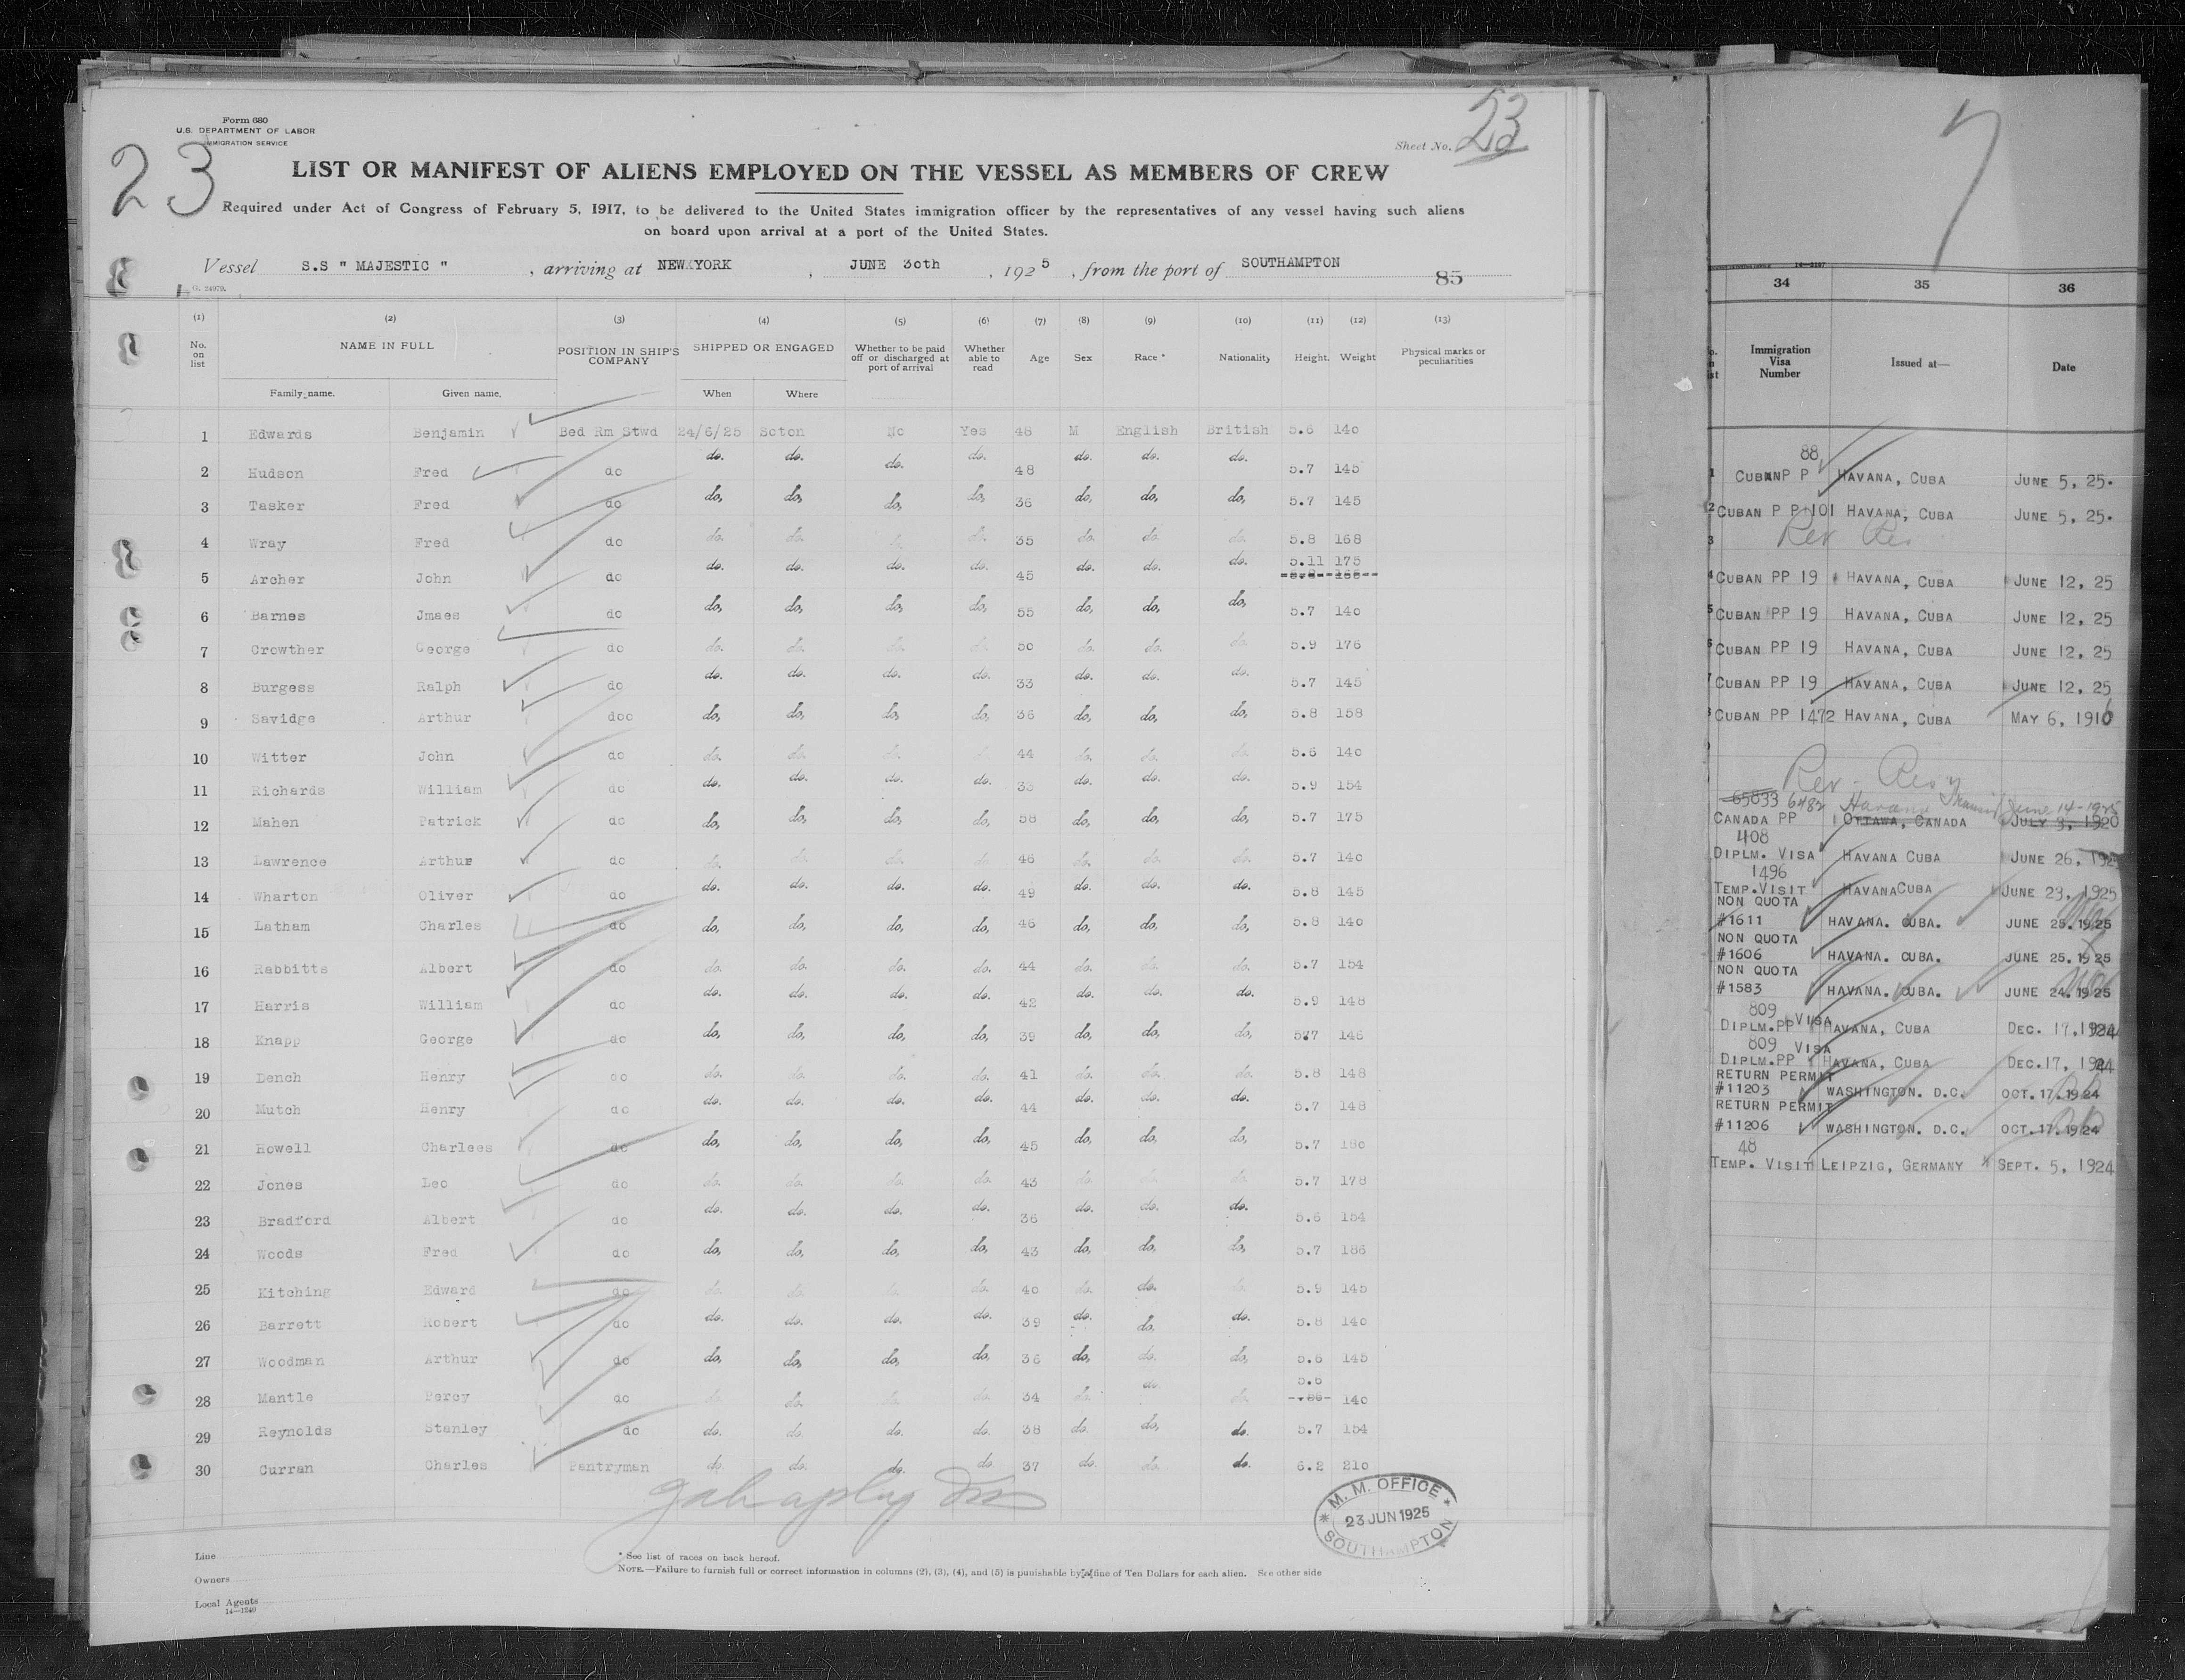 Form 680
U.S. DEPARTMENT OF LABOR
IMMIGRATION SERVICE
23
Sheet No. 23
LIST OR MANIFEST OF ALIENS EMPLOYED ON THE VESSEL AS MEMBERS OF CREW
Required under Act of Congress of February 5, 1917, to be delivered to the United States immigration officer by the representatives of any vessel having such aliens
on board upon arrival at a port of the United States.
Vessel S.S " MAJESTIC " , arriving at NEW YORK , JUNE 30th , 192 5 , from the port of SOUTHAMPTON
85
G. 24979.
(1) (2) (3) (4) (5) (6) (7) (8) (9) (10) (11) (12) (13)
No. on list NAME IN FULL POSITION IN SHIP'S COMPANY SHIPPED OR ENGAGED Whether to be paid off or discharged at port of arrival Whether able to read Age Sex Race * Nationality Height. Weight Physical marks or peculiarities
Family name. Given name. When Where
1 Edwards Benjamin Bed Rm Stwd 24/6/25 Soton No Yes 48 M English British 5.6 140
2 Hudson Fred do do. do. do. do. 48 do. do. do. 5.7 145
3 Tasker Fred do do, do, do, do, 36 do, do, do, 5.7 145
4 Wray Fred do do. do. do. do. 35 do. do. do. 5.8 168
5 Archer John do do. do. do. do. 45 do. do. do. 5.11 175
6 Barnes Jmaes do do, do, do, do, 55 do, do, do, 5.7 140
7 Crowther George do do. do. do. do. 50 do. do. do. 5.9 176
8 Burgess Ralph do do. do. do. do. 33 do. do. do. 5.7 145
9 Savidge Arthur doo do, do, do, do, 36 do, do, do, 5.8 158
10 Witter John do do. do. do. do. 44 do. do. do. 5.6 140
11 Richards William do do. do. do. do. do. do. do. 5.9 154
12 Mahen Patrick do do, do, do, do, 58 do, do, do, 5.7 175
13 Lawrence Arthur do do. do. do. do. 46 do. do. do. 5.7 140
14 Wharton Oliver do do. do. do. do. 49 do. do. do. 5.8 145
15 Latham Charles do do, do, do, do, 46 do, do, do, 5.8 140
16 Rabbitts Albert do do. do. do. do. 44 do. do. do. 5.7 154
17 Harris William do do. do. do. do. 42 do. do. do. 5.9 148
18 Knapp George do do, do, do, do, 39 do, do, do, 577 146
19 Dench Henry do do. do. do. do. 41 do. do. do. 5.8 148
20 Mutch Henry do do. do. do. do. 44 do. do. do. 5.7 148
21 Howell Charlees do do, do, do, do, 45 do, do, do, 5.7 180
22 Jones Leo do do. do. do. do. 43 do. do. do. 5.7 178
23 Bradford Albert do do. do. do. do. 36 do. do. do. 5.6 154
24 Woods Fred do do, do, do, do, 43 do, do, do, 5.7 186
25 Kitching Edward do do. do. do. do. 40 do. do. do. 5.9 145
26 Barrett Robert do do. do. do. do. 39 do. do, do. 5.8 140
27 Woodman Arthur do do, do, do, do, 36 do, do. do, 5.6 145
28 Mantle Percy do do. do. do. do. 34 do. do do. 5.6 140
29 Reynolds Stanley do do. do. do. do. 38 do. do, do. 5.7 154
30 Curran Charles Pantryman do. do. do. do. 37 do. do. do. 6.2 210
M. M. OFFICE
23 JUN 1925
SOUTHAMPTON
Line
Owners
Local Agents
14—1240
* See list of races on back hereof.
NOTE.—Failure to furnish full or correct information in columns (2), (3), (4), and (5) is punishable by a fine of Ten Dollars for each alien. See other side
7
34 35 36
Immigration Visa Number Issued at— Date
88
1 CUBAN P P HAVANA, CUBA JUNE 5, 25.
2 CUBAN P P 101 HAVANA, CUBA JUNE 5, 25.
3 Rev Res
4 CUBAN PP 19 HAVANA, CUBA JUNE 12, 25
5 CUBAN PP 19 HAVANA, CUBA JUNE 12, 25
6 CUBAN PP 19 HAVANA, CUBA JUNE 12, 25
7 CUBAN PP 19 HAVANA, CUBA JUNE 12, 25
CUBAN PP 1472 HAVANA, CUBA MAY 6, 1916
Rev - Res
65833 6482 Havana June 14-1925
CANADA PP OTTAWA, CANADA JULY 3, 1920
408
DIPLM. VISA HAVANA CUBA JUNE 26, 1925
1496
TEMP. VISIT HAVANA CUBA JUNE 23, 1925
NON QUOTA
#1611 HAVANA. CUBA. JUNE 25. 1925
NON QUOTA
#1606 HAVANA. CUBA. JUNE 25. 1925
NON QUOTA
#1583 HAVANA. CUBA. JUNE 24. 1925
809 VISA
DIPLM.PP HAVANA, CUBA DEC. 17, 1924
809 VISA
DIPLM.PP HAVANA, CUBA DEC.17, 1924
RETURN PERMIT
#11203 WASHINGTON. D.C. OCT. 17. 1924
RETURN PERMIT
#11206 WASHINGTON. D.C. OCT. 17. 1924
48
TEMP. VISIT LEIPZIG, GERMANY SEPT. 5, 1924